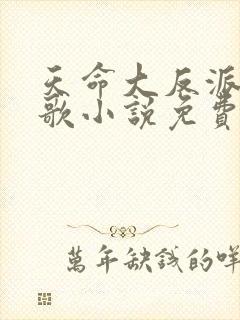 天命大反派
歌小說免費
萬年缺錢的咩